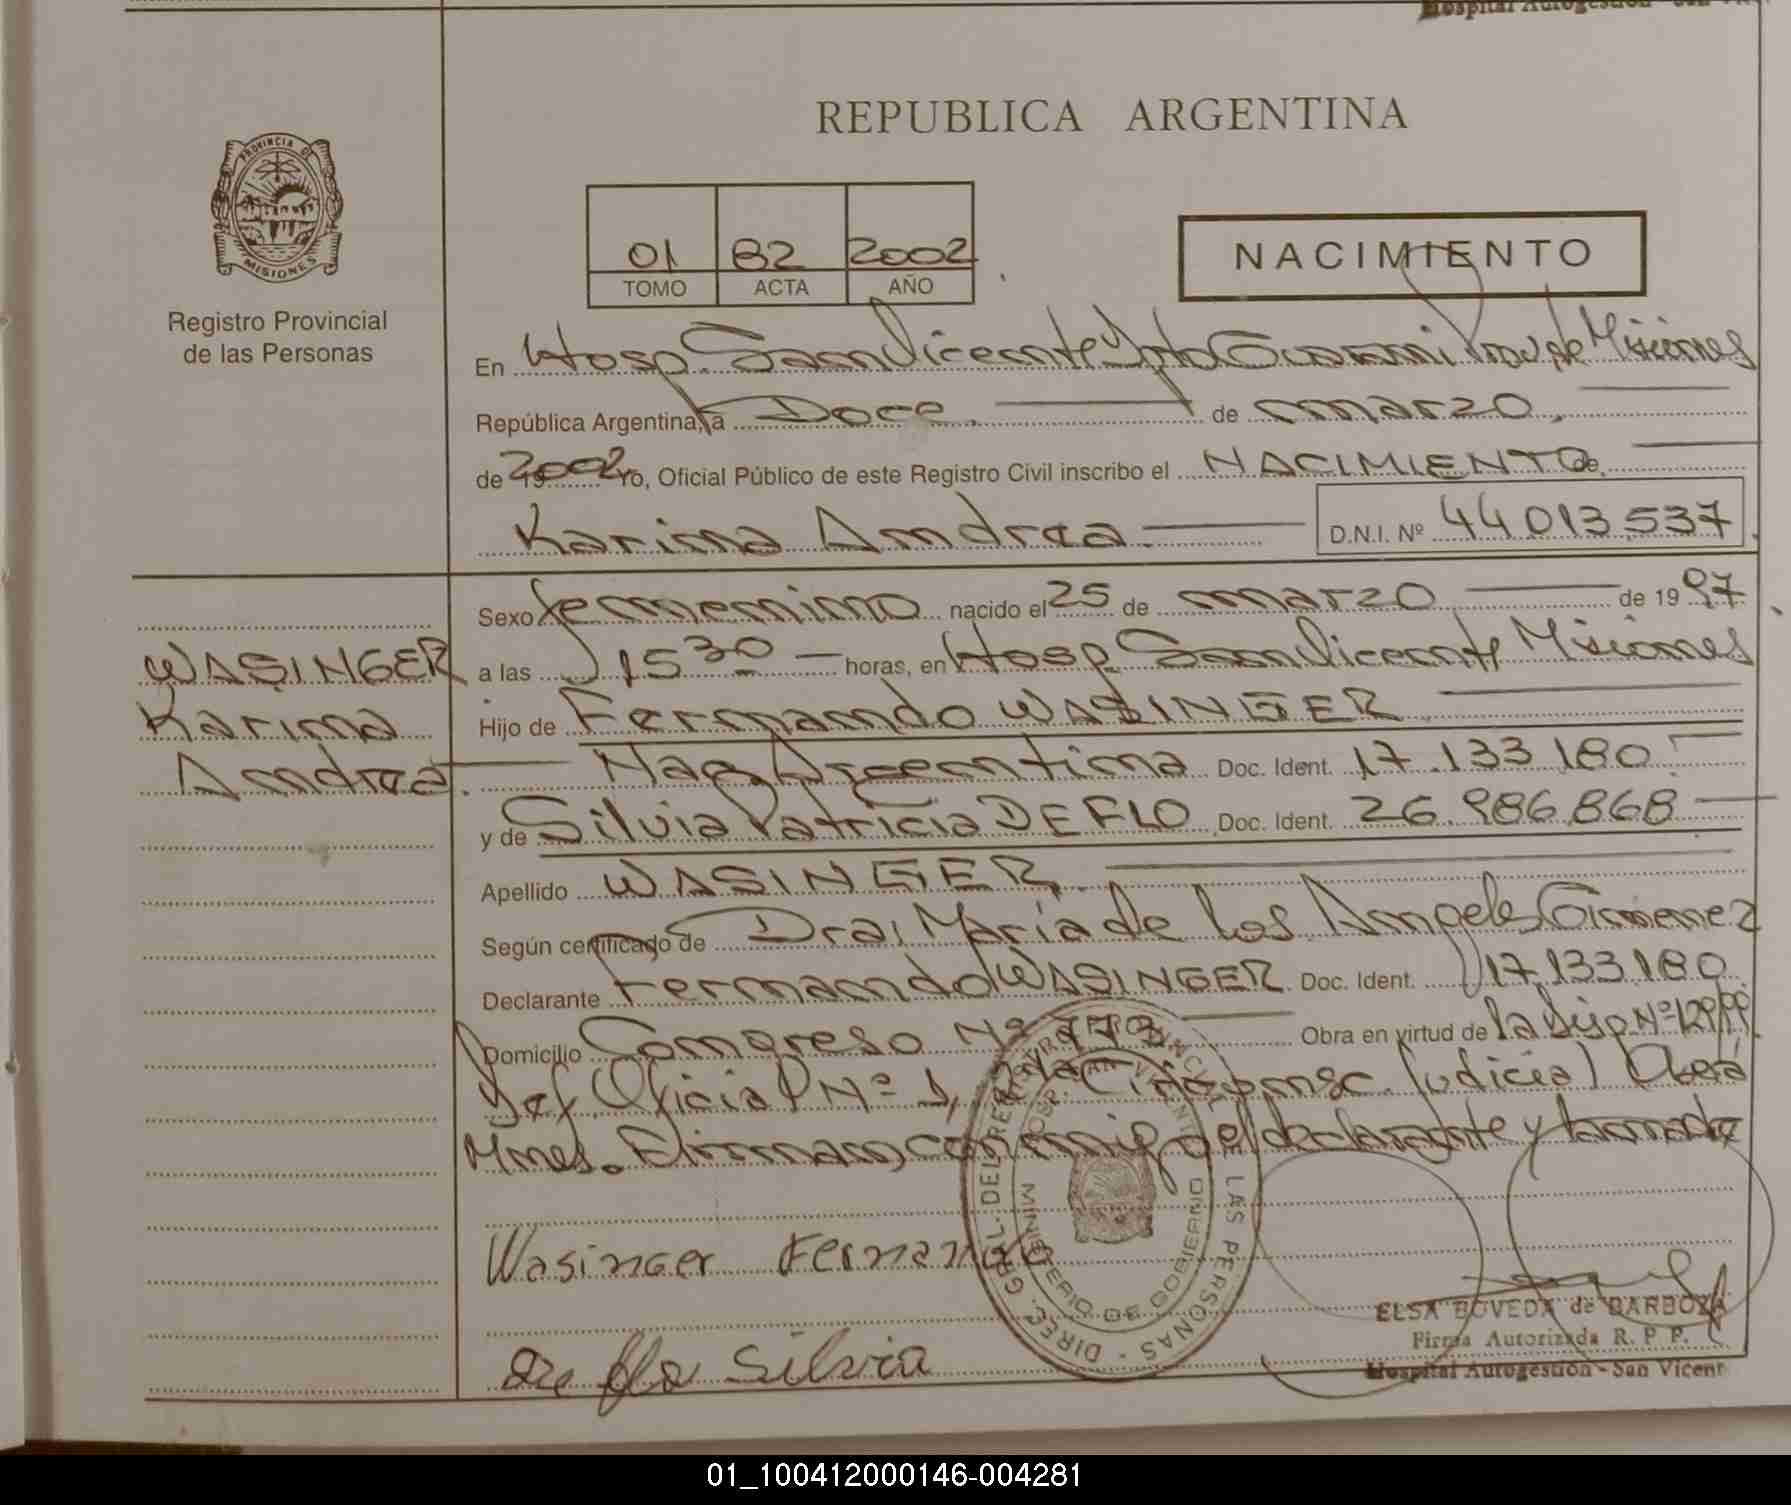 Hospital Autogestión - San Vic
REPUBLICA ARGENTINA
PROVINCIA DE
MISIONES
Registro Provincial
de las Personas
01 82 2002
TOMO ACTA AÑO
NACIMIENTO
En Hosp. San Vicente Dpto Guarani Prov. de Misiones
República Argentina, a Doce. de marzo,
de 2002 Yo, Oficial Público de este Registro Civil inscribo el NACIMIENTO de
Karina Andrea D.N.I. Nº 44 013 537
WASINGER
Karina
Andrea.
Sexo femenino nacido el 25 de marzo de 19 97
a las 15 30 horas, en Hosp. San Vicente Misiones
Hijo de Fernando WASINGER
Nac. Argentina Doc. Ident. 17.133.180
y de Silvia Patricia DE FLO Doc. Ident. 26.986.868
Apellido WASINGER
Según certificado de Dra. María de los Angeles Gimenez
Declarante Fernando WASINGER Doc. Ident. 17.133.180
Domicilio Congreso Nº 773 Obra en virtud de la Disp Nº 12/99
Def. Oficial Nº 1, Circunsc. Judicial Oberá
Mnes. Firman conmigo el declarante y
Wasinger Fernando
De flo Silvia
DIREC. GRAL. DEL REGISTRO PROVINCIAL DE LAS PERSONAS
HOSP. SAN VICENTE
MINISTERIO DE GOBIERNO
ELSA BOVEDA de BARBOZA
Firma Autorizada R. P. P.
Hospital Autogestión - San Vicent
01_100412000146-004281